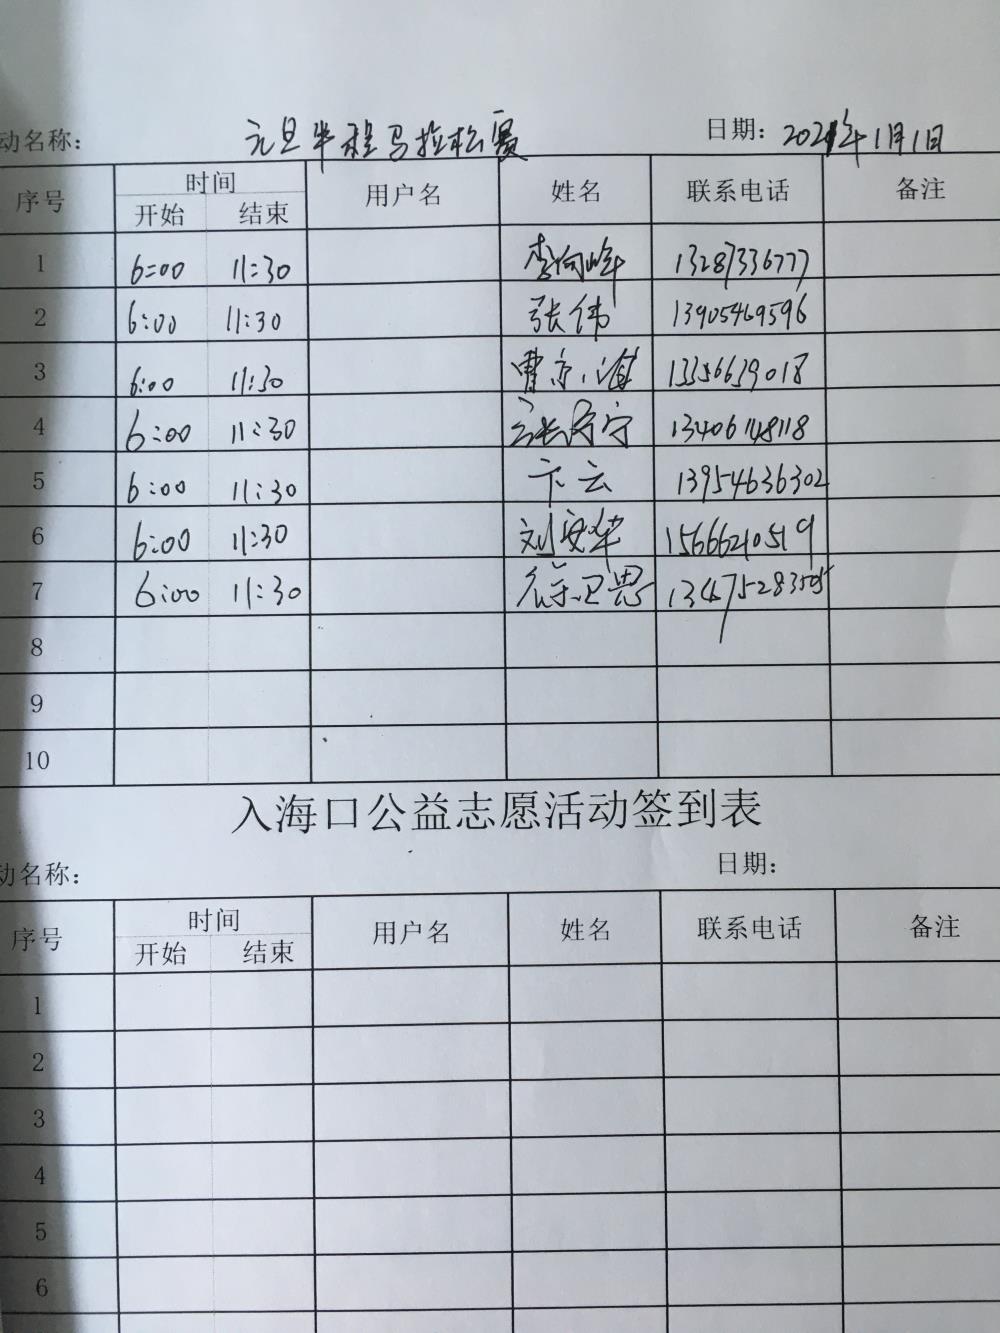 动名称： 元旦半程马拉松赛 日期：2021年1月1日
序号 时间 用户名 姓名 联系电话 备注
开始 结束
1 6:00 11:30 李向峰 13287336777
2 6:00 11:30 张伟 13905469596
3 6:00 11:30 曹 13356639018
4 6:00 11:30 宁 13406148118
5 6:00 11:30 卞云 13954636302
6 6:00 11:30 刘安华 15666210519
7 6:00 11:30
8
9
10
入海口公益志愿活动签到表
动名称： 日期：
序号 时间 用户名 姓名 联系电话 备注
开始 结束
1
2
3
4
5
6